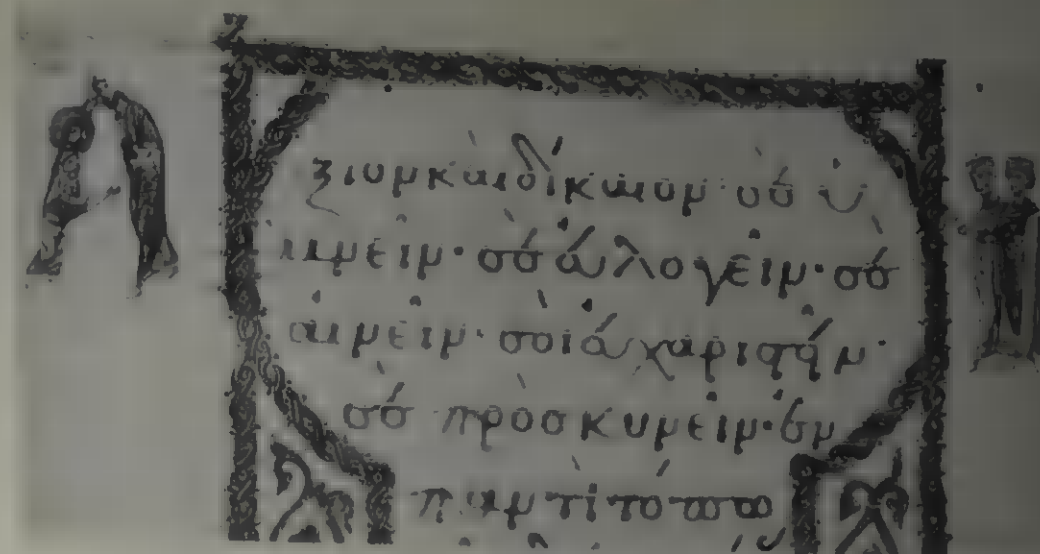 Ἄξιον καὶ δίκαιον· σὲ ὑ
μνεῖν· σὲ εὐλογεῖν· σὲ
αἰνεῖν· σοὶ εὐχαριστεῖν·
σὲ προσκυνεῖν· ἐν
παντὶ τόπω